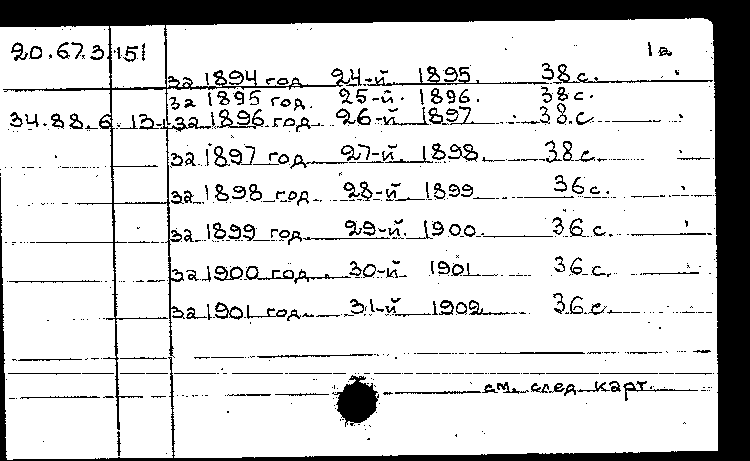 20.67.3 151 1а
за 1894 год 24-й 1895. 38 с.
за 1895 год. 25-й. 1896. 38 с.
34.88.6 13-1 за 1896 год 26-й 1897 38.с
за 1897 год 27-й. 1898. 38 с.
за 1898 год. 28-й 1899 36 с.
за 1899 год. 29-й. 1900. 36 с.
за 1900 год. 30-й 1901 36 с.
за 1901 год. 31-й 1902 36 с.
см. след. карт.